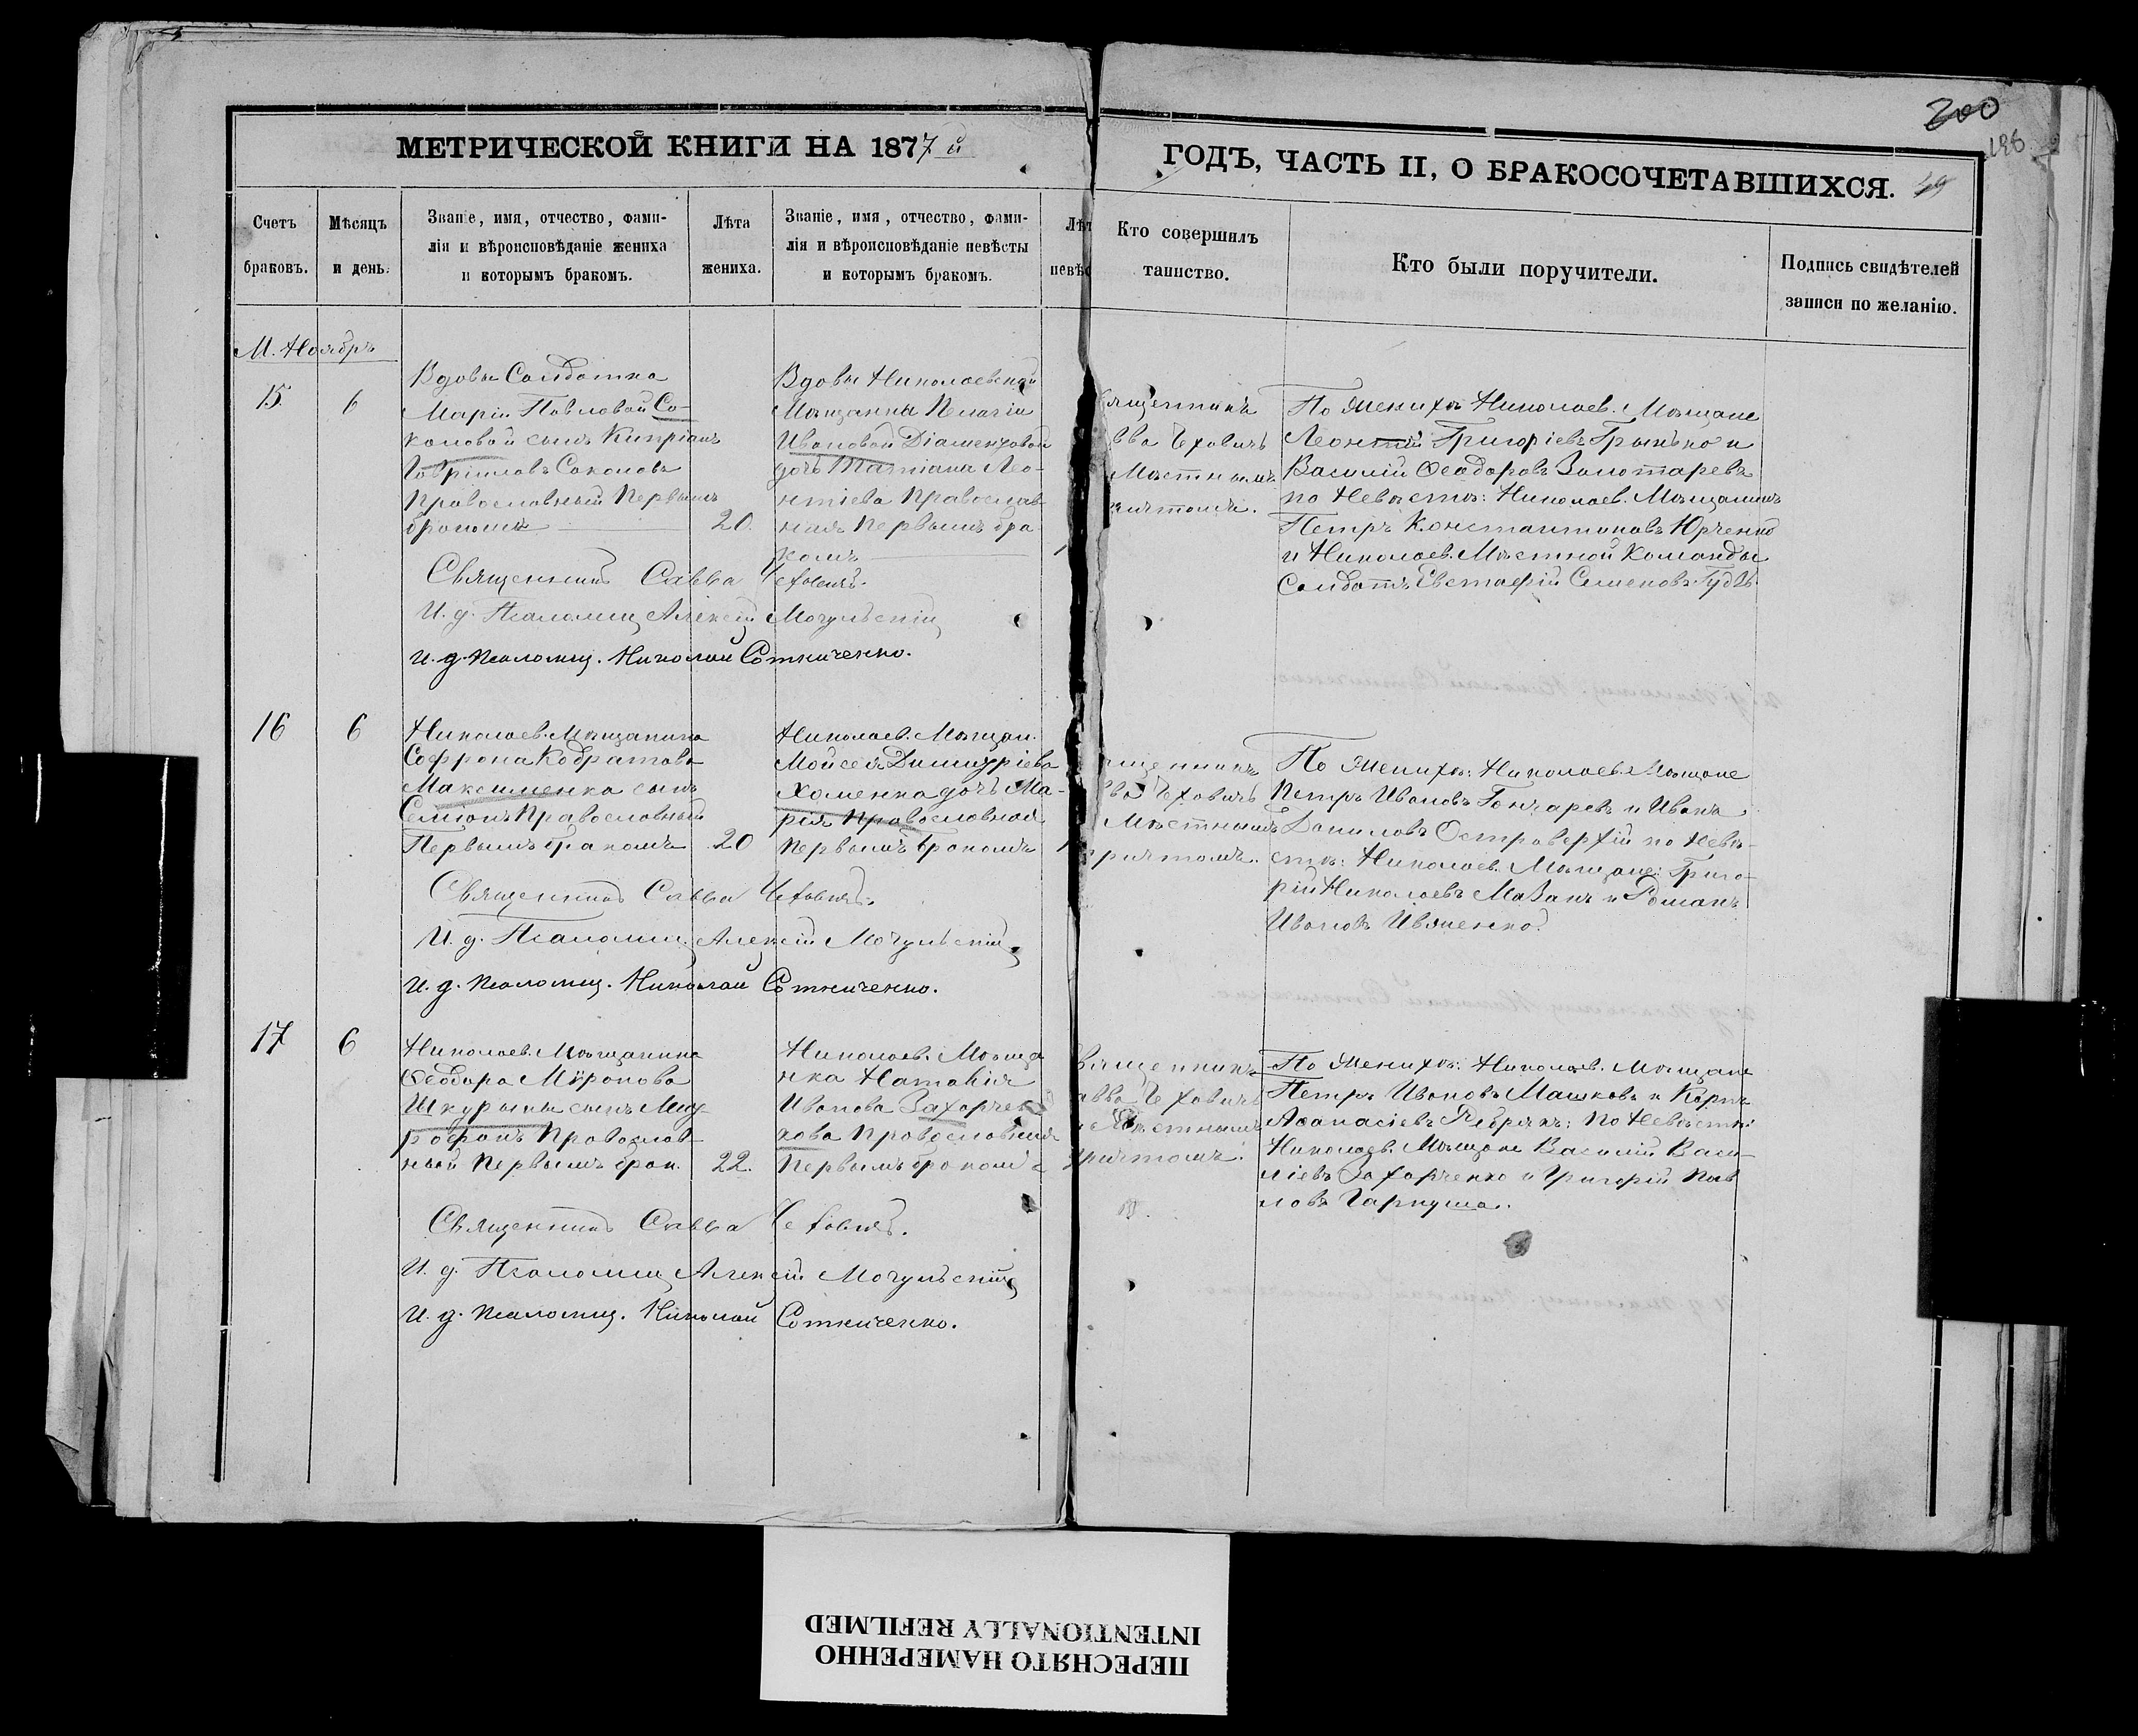 200
198
МЕТРИЧЕСКОЙ КНИГИ НА 1877й
ГОДЪ, ЧАСТЬ II, О БРАКОСОЧЕТАВШИХСЯ.
Счетъ браковъ.
Мѣсяцъ и день.
Званіе, имя, отчество, фами-
лія и вѣроисповѣданіе жениха
и которымъ бракомъ.
Лѣта жениха.
Званіе, имя, отчество, фами-
лія и вѣроисповѣданіе невѣсты
и которымъ бракомъ.
Кто совершилъ
таинство.
Кто были поручители.
Подпись свидѣтелей
записи по желанію.
М. Ноябрь
15.
6
Вдовы Солдатка
Маріи Павловой Со-
коловой сынъ Кипріанъ
Гавріиловъ Соколовъ
Православный Первымъ
бракомъ
20.
Вдовы Николаевской
Мѣщанки Пелагіи
Ивановой Діаментовой
дочь Татіана Лео-
нтіева Православ-
ная Первымъ бра
комъ
ященникъ
вва Чеховичъ
Мѣстнымъ
ичтомъ.
По Женихѣ Николаев. Мѣщане
Леонтій Григоріевъ Грынько и
Василій Ѳеодоровъ Золотаревъ
по Невѣстѣ: Николаев. Мѣщанинъ
Петръ Константиновъ Юрченко
и Николаев. Мѣстной Команды
Солдатъ Евстафій Семеновъ Гудзь.
Священникъ Савва Чеховичъ.
И. д. Псаломщ Алексій Могульскій
И. д. Псаломщ. Николай Сотниченко.
16
6
Николаев. Мѣщанина
Софрона Кодратова
Максименка сынъ
Симеонъ Православный
Первымъ бракомъ
20
Николаев. Мѣщан.
Мойсея Димитріева
Хоменка дочь Ма-
рія Православной
Первымъ бракомъ
щенникъ
ва Чеховичъ
Мѣстнымъ
ричтомъ.
По Женихѣ: Николаев. Мѣщане
Петръ Ивановъ Гончаревъ и Иванъ
Даниловъ Островерхій по Невѣ-
стѣ: Николаев. Мѣщане: Григо-
рій Николаевъ Мазанъ и Романъ
Ивановъ Ивженко.
Священникъ Савва Чеховичъ.
И. д. Псаломщ. Алексій Могульскій
И. д. Псаломщ. Николай Сотниченко.
17
6
Николаев. Мѣщанина
Ѳеодора Мѵронова
Шкурына сынъ Мит-
рофанъ Православ-
ный Первымъ брак.
22.
Николаев. Мѣща
нка Наталія
Иванова Захорчен
кова Православная
Первымъ бракомъ
вященникъ
авва Чеховичъ
Мѣстнымъ
ричтомъ.
По Женихѣ: Николаев. Мѣщане
Петръ Ивановъ Машковъ и Карпъ
Аѳанасіевъ Ребрикъ: По Невѣстѣ:
Николаев. Мѣщане Василій Васи-
ліевъ Захорченко и Григорій Пав
ловъ Гаркуша.
Священникъ Савва Чеховичъ.
И. д. Псаломщ Алексій Могульскій
И. д. Псаломщ. Николай Сотниченко.
ПЕРЕСНЯТО НАМЕРЕННО
INTENTIONALLY REFILMED